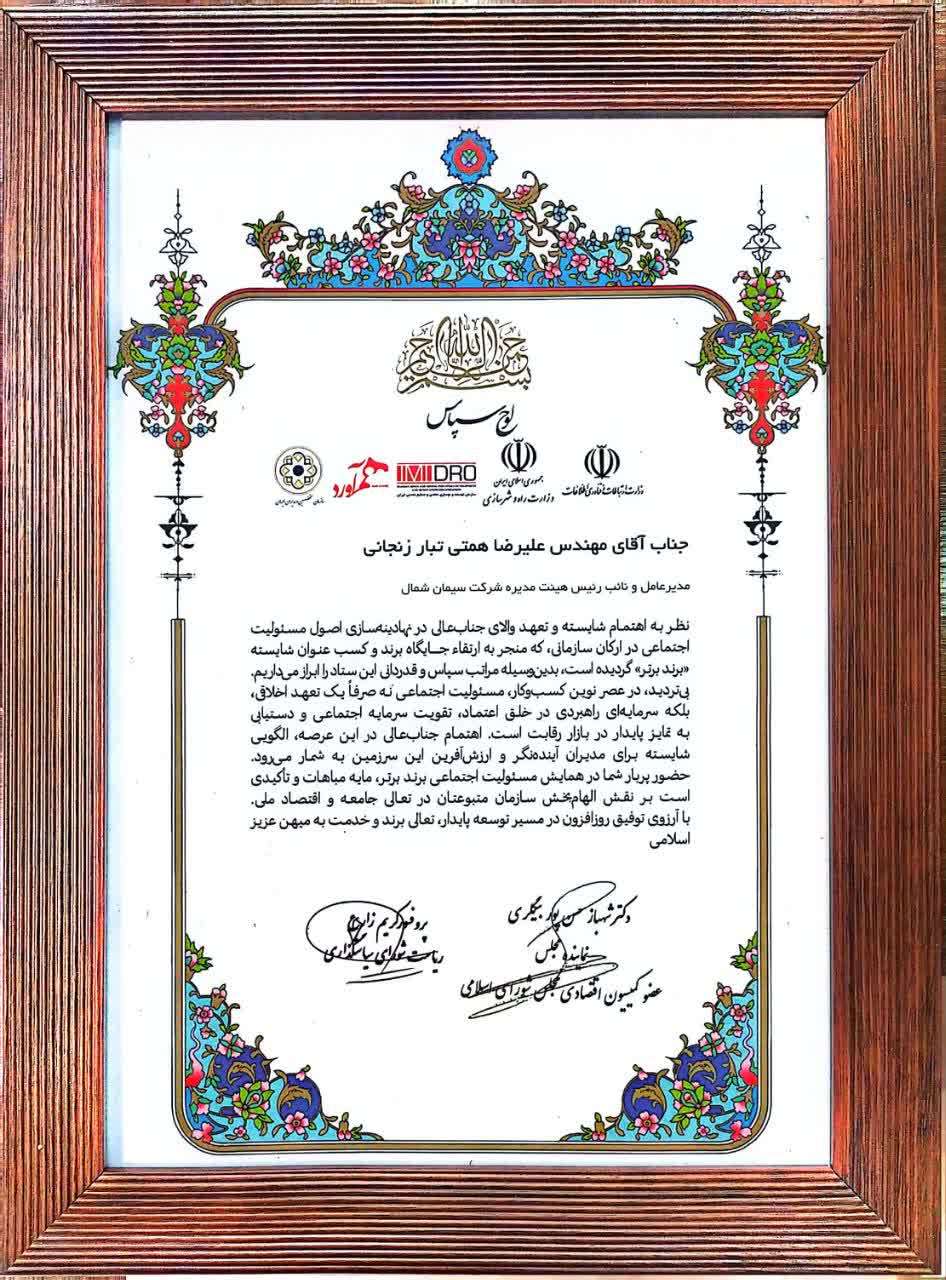 بسم الله الرحمن الرحیم
لوح سپاس
وزارت ارتباطات و فناوری اطلاعات
جمهوری اسلامی ایران
وزارت راه و شهرسازی
IMIDRO
هم‌آورد
جناب آقای مهندس علیرضا همتی تبار زنجانی
مدیرعامل و نائب رئیس هیئت مدیره شرکت سیمان شمال
نظر به اهتمام شایسته و تعهد والای جناب‌عالی در نهادینه‌سازی اصول مسئولیت
اجتماعی در ارکان سازمانی، که منجر به ارتقاء جایگاه برند و کسب عنوان شایسته
«برند برتر» گردیده است، بدین‌وسیله مراتب سپاس و قدردانی این ستاد را ابراز می‌داریم.
بی‌تردید، در عصر نوین کسب‌وکار، مسئولیت اجتماعی نه صرفاً یک تعهد اخلاقی،
بلکه سرمایه‌ای راهبردی در خلق اعتماد، تقویت سرمایه اجتماعی و دستیابی
به تمایز پایدار در بازار رقابت است. اهتمام جناب‌عالی در این عرصه، الگویی
شایسته برای مدیران آینده‌نگر و ارزش‌آفرین این سرزمین به شمار می‌رود.
حضور پربار شما در همایش مسئولیت اجتماعی برند برتر، مایه مباهات و تأکیدی
است بر نقش الهام‌بخش سازمان متبوعتان در تعالی جامعه و اقتصاد ملی.
با آرزوی توفیق روزافزون در مسیر توسعه پایدار، تعالی برند و خدمت به میهن عزیز
اسلامی
دکتر شهباز حسن پور بیگلری
نماینده مجلس
عضو کمیسیون اقتصادی مجلس شورای اسلامی
پروفسور کریم زارع
ریاست شورای سیاستگذاری